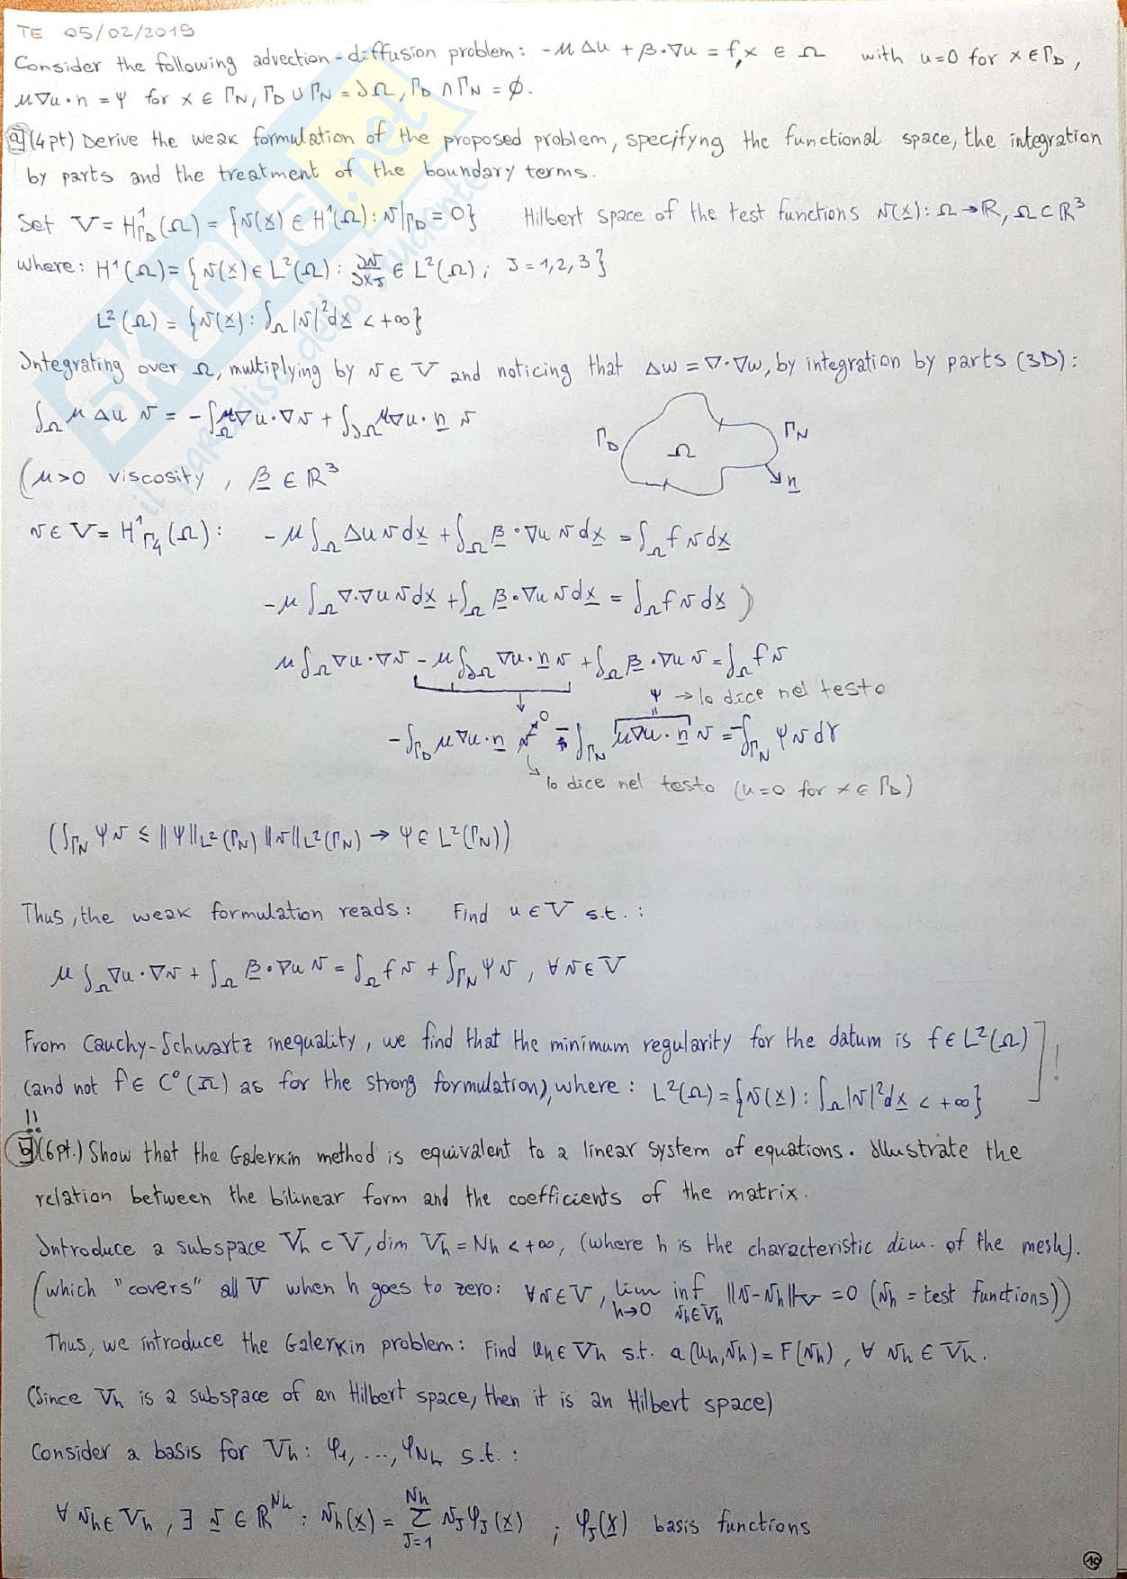 TE 05/02/2019
Consider the following advection-diffusion problem: -μΔu + β·∇u = f, x ∈ Ω with u=0 for x∈Γ_D,
μ∇u·n = ψ for x ∈ Γ_N, Γ_D ∪ Γ_N = ∂Ω, Γ_D ∩ Γ_N = ∅.
a) (4pt) Derive the weak formulation of the proposed problem, specifyng the functional space, the integration
by parts and the treatment of the boundary terms.
Set V = H¹_{Γ_D}(Ω) = {v(x) ∈ H¹(Ω): v|_{Γ_D} = 0} Hilbert space of the test functions v(x): Ω→R, Ω⊂R³
where: H¹(Ω) = {v(x) ∈ L²(Ω): ∂v/∂x_J ∈ L²(Ω); J = 1,2,3}
L²(Ω) = {v(x): ∫_Ω |v|² dx < +∞}
Integrating over Ω, multiplying by v∈V and noticing that Δw = ∇·∇w, by integration by parts (3D):
∫_Ω μ Δu v = -∫_Ω μ∇u·∇v + ∫_{∂Ω} μ∇u·n v
Γ_D Ω Γ_N n
(μ>0 viscosity, β ∈ R³
v∈V = H¹_{Γ_4}(Ω): -μ∫_Ω Δu v dx + ∫_Ω β·∇u v dx = ∫_Ω f v dx
-μ∫_Ω ∇·∇u v dx + ∫_Ω β·∇u v dx = ∫_Ω f v dx)
μ∫_Ω ∇u·∇v - μ∫_{∂Ω} ∇u·n v + ∫_Ω β·∇u v = ∫_Ω f v
ψ → lo dice nel testo
-∫_{Γ_D} μ∇u·n v→0 - ∫_{Γ_N} μ∇u·n v = -∫_{Γ_N} ψ v dγ
lo dice nel testo (u=0 for x∈Γ_D)
(∫_{Γ_N} ψv ≤ ||ψ||_{L²(Γ_N)} ||v||_{L²(Γ_N)} → ψ∈L²(Γ_N))
Thus, the weak formulation reads: Find u∈V s.t.:
μ∫_Ω ∇u·∇v + ∫_Ω β·∇u v = ∫_Ω f v + ∫_{Γ_N} ψ v, ∀v∈V
From Cauchy-Schwartz inequality, we find that the minimum regularity for the datum is f∈L²(Ω)
(and not f∈C⁰(Ω̅) as for the strong formulation), where: L²(Ω) = {v(x): ∫_Ω |v|² dx < +∞} !
!!
b) (6pt.) Show that the Galerkin method is equivalent to a linear system of equations. Illustrate the
relation between the bilinear form and the coefficients of the matrix.
Introduce a subspace V_h ⊂ V, dim V_h = N_h < +∞, (where h is the characteristic dim. of the mesh).
(which "covers" all V when h goes to zero: ∀v∈V, lim_{h→0} inf_{v_h∈V_h} ||v-v_h||_V = 0 (v_h = test functions))
Thus, we introduce the Galerkin problem: Find u_h∈V_h s.t. a(u_h,v_h) = F(v_h), ∀ v_h ∈ V_h.
(Since V_h is a subspace of an Hilbert space, then it is an Hilbert space)
Consider a basis for V_h: φ_1, ..., φ_{N_h} s.t.:
∀ v_h∈V_h, ∃ v ∈ R^{N_h}: v_h(x) = Σ_{J=1}^{N_h} v_J φ_J(x) ; φ_J(x) basis functions
10
SKUOLA.net
il paradiso dello studente